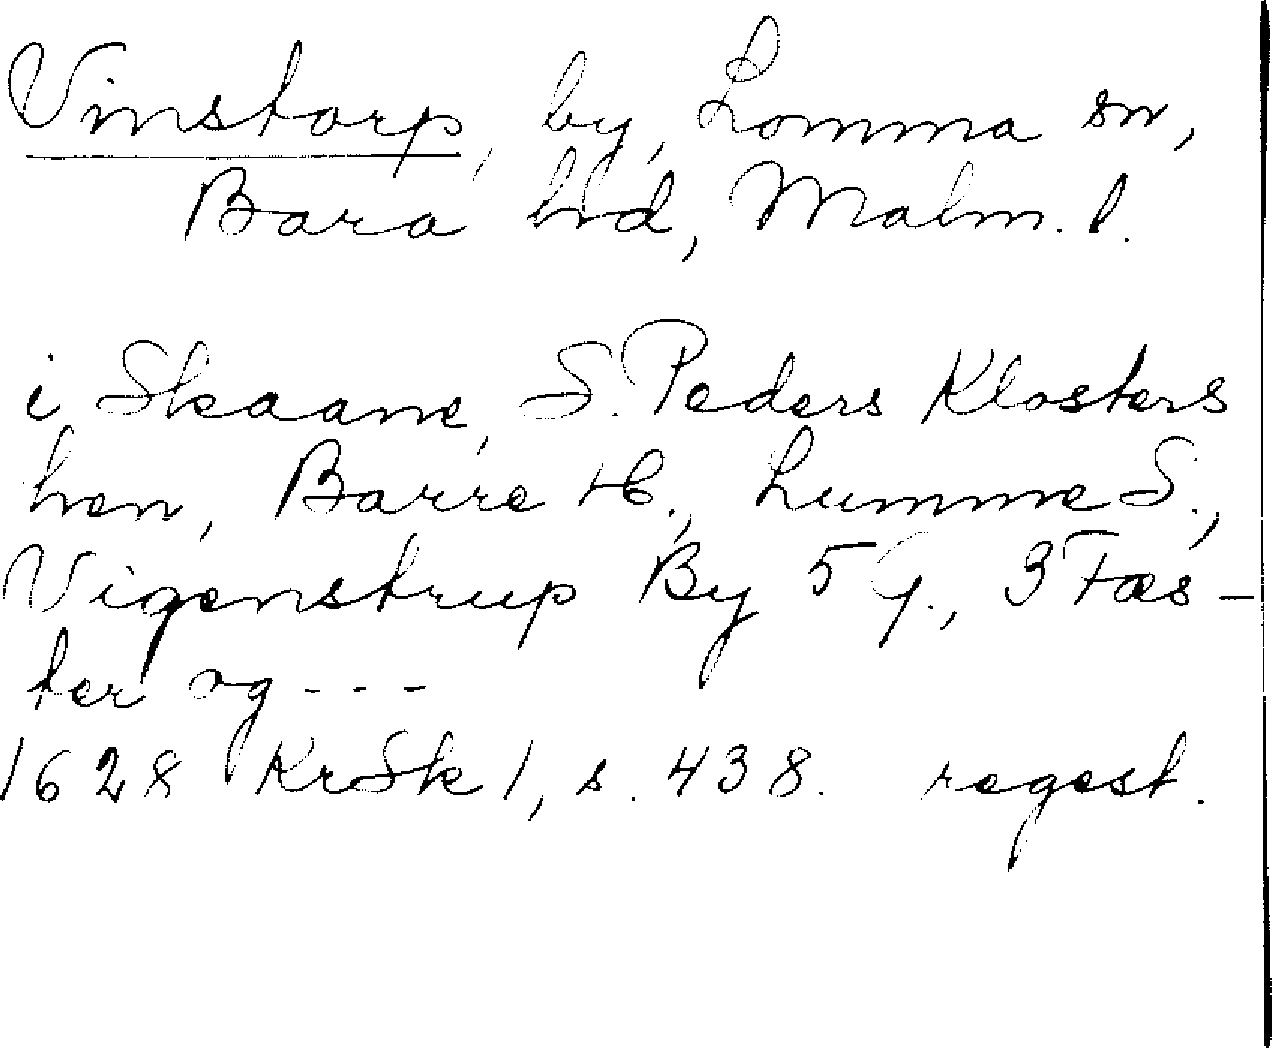 Vinstorp, by, Lomma sn,
Bara hd, Malm. l.
i Skaane, S. Peders Klosters
len, Barre H., Lumme S.,
Vigenstrup By 5 G., 3 Fæs-
ter og - - -
1628 KrSk 1, s. 438. regest.